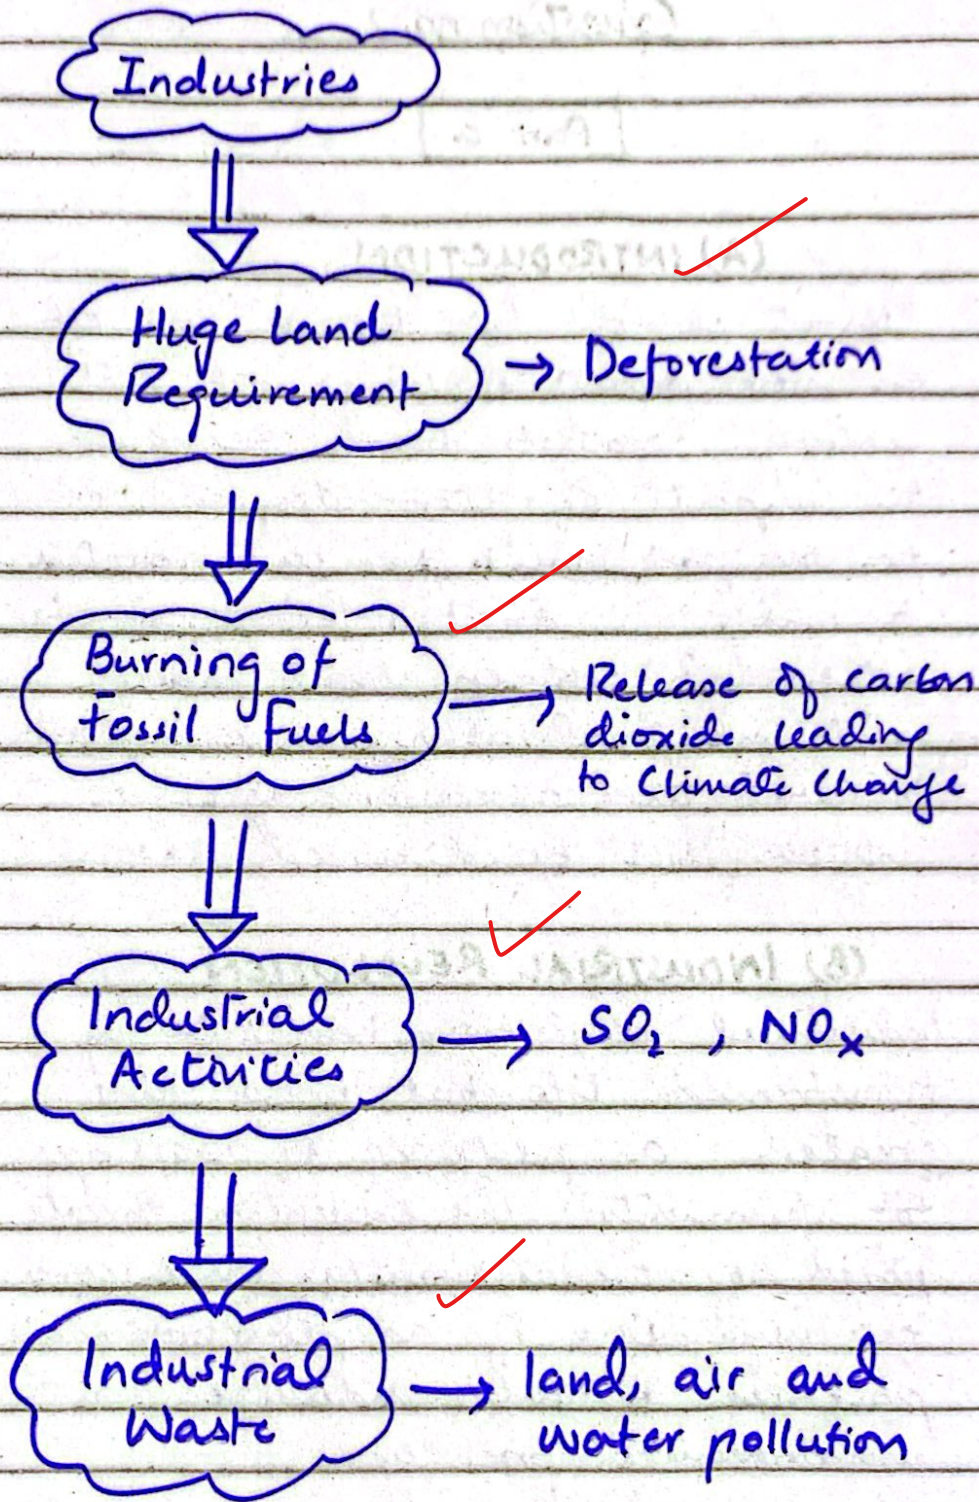 Industries
Huge Land
Requirement → Deforestation
Burning of
Fossil Fuels → Release of carbon
dioxide leading
to Climate Change
Industrial
Activities → SO₂ , NOₓ
Industrial
Waste → land, air and
water pollution
(A) INTRODUCTION